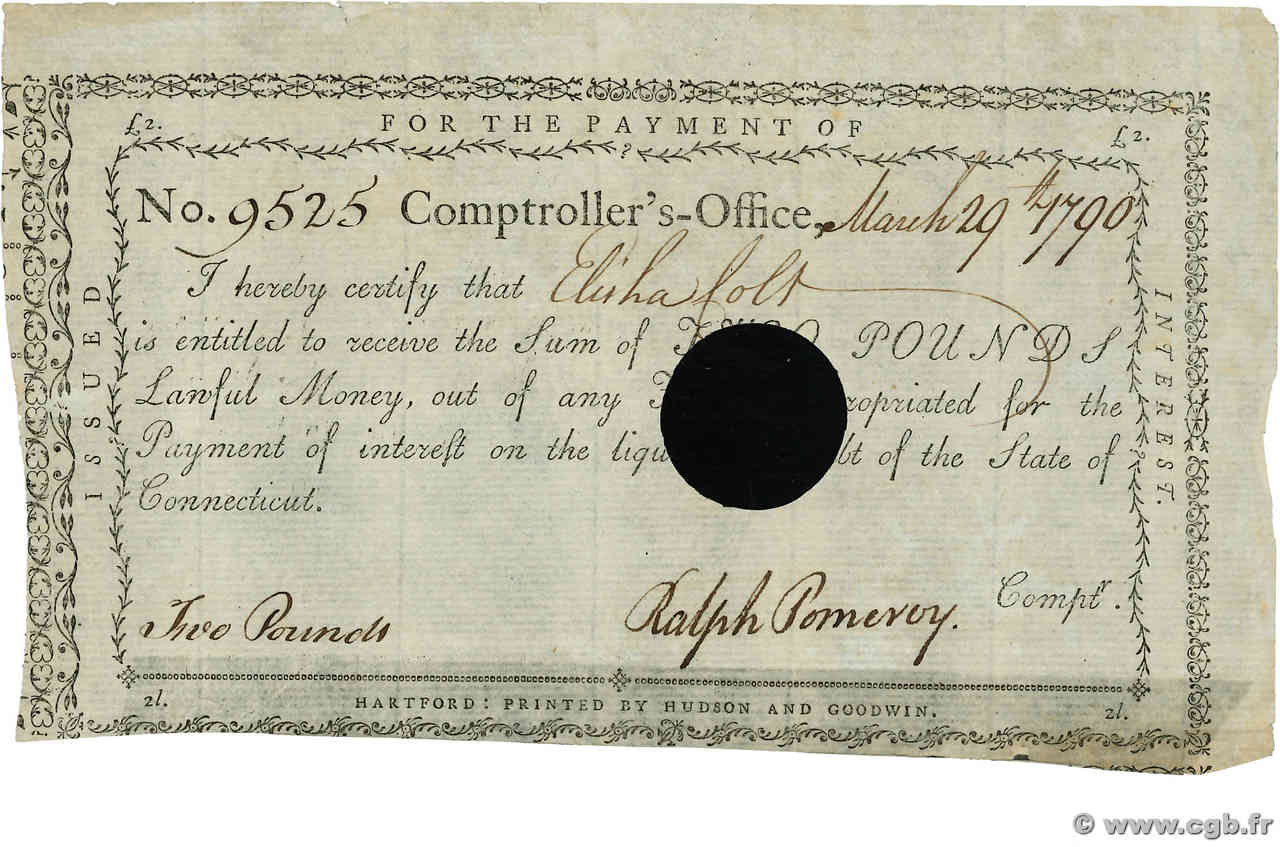 £2. FOR THE PAYMENT OF £2.
No. 9525 Comptroller's-Office, March 29th 1790
I hereby certify that Elisha Colt
is entitled to receive the Sum of POUNDS
Lawful Money, out of any for the
Payment of intereſt on the of the State of
Connecticut.
Two Pounds Ralph Pomeroy. Comptr.
2l. HARTFORD: PRINTED BY HUDSON AND GOODWIN. 2l.
ISSUED
INTEREST.
© www.cgb.fr